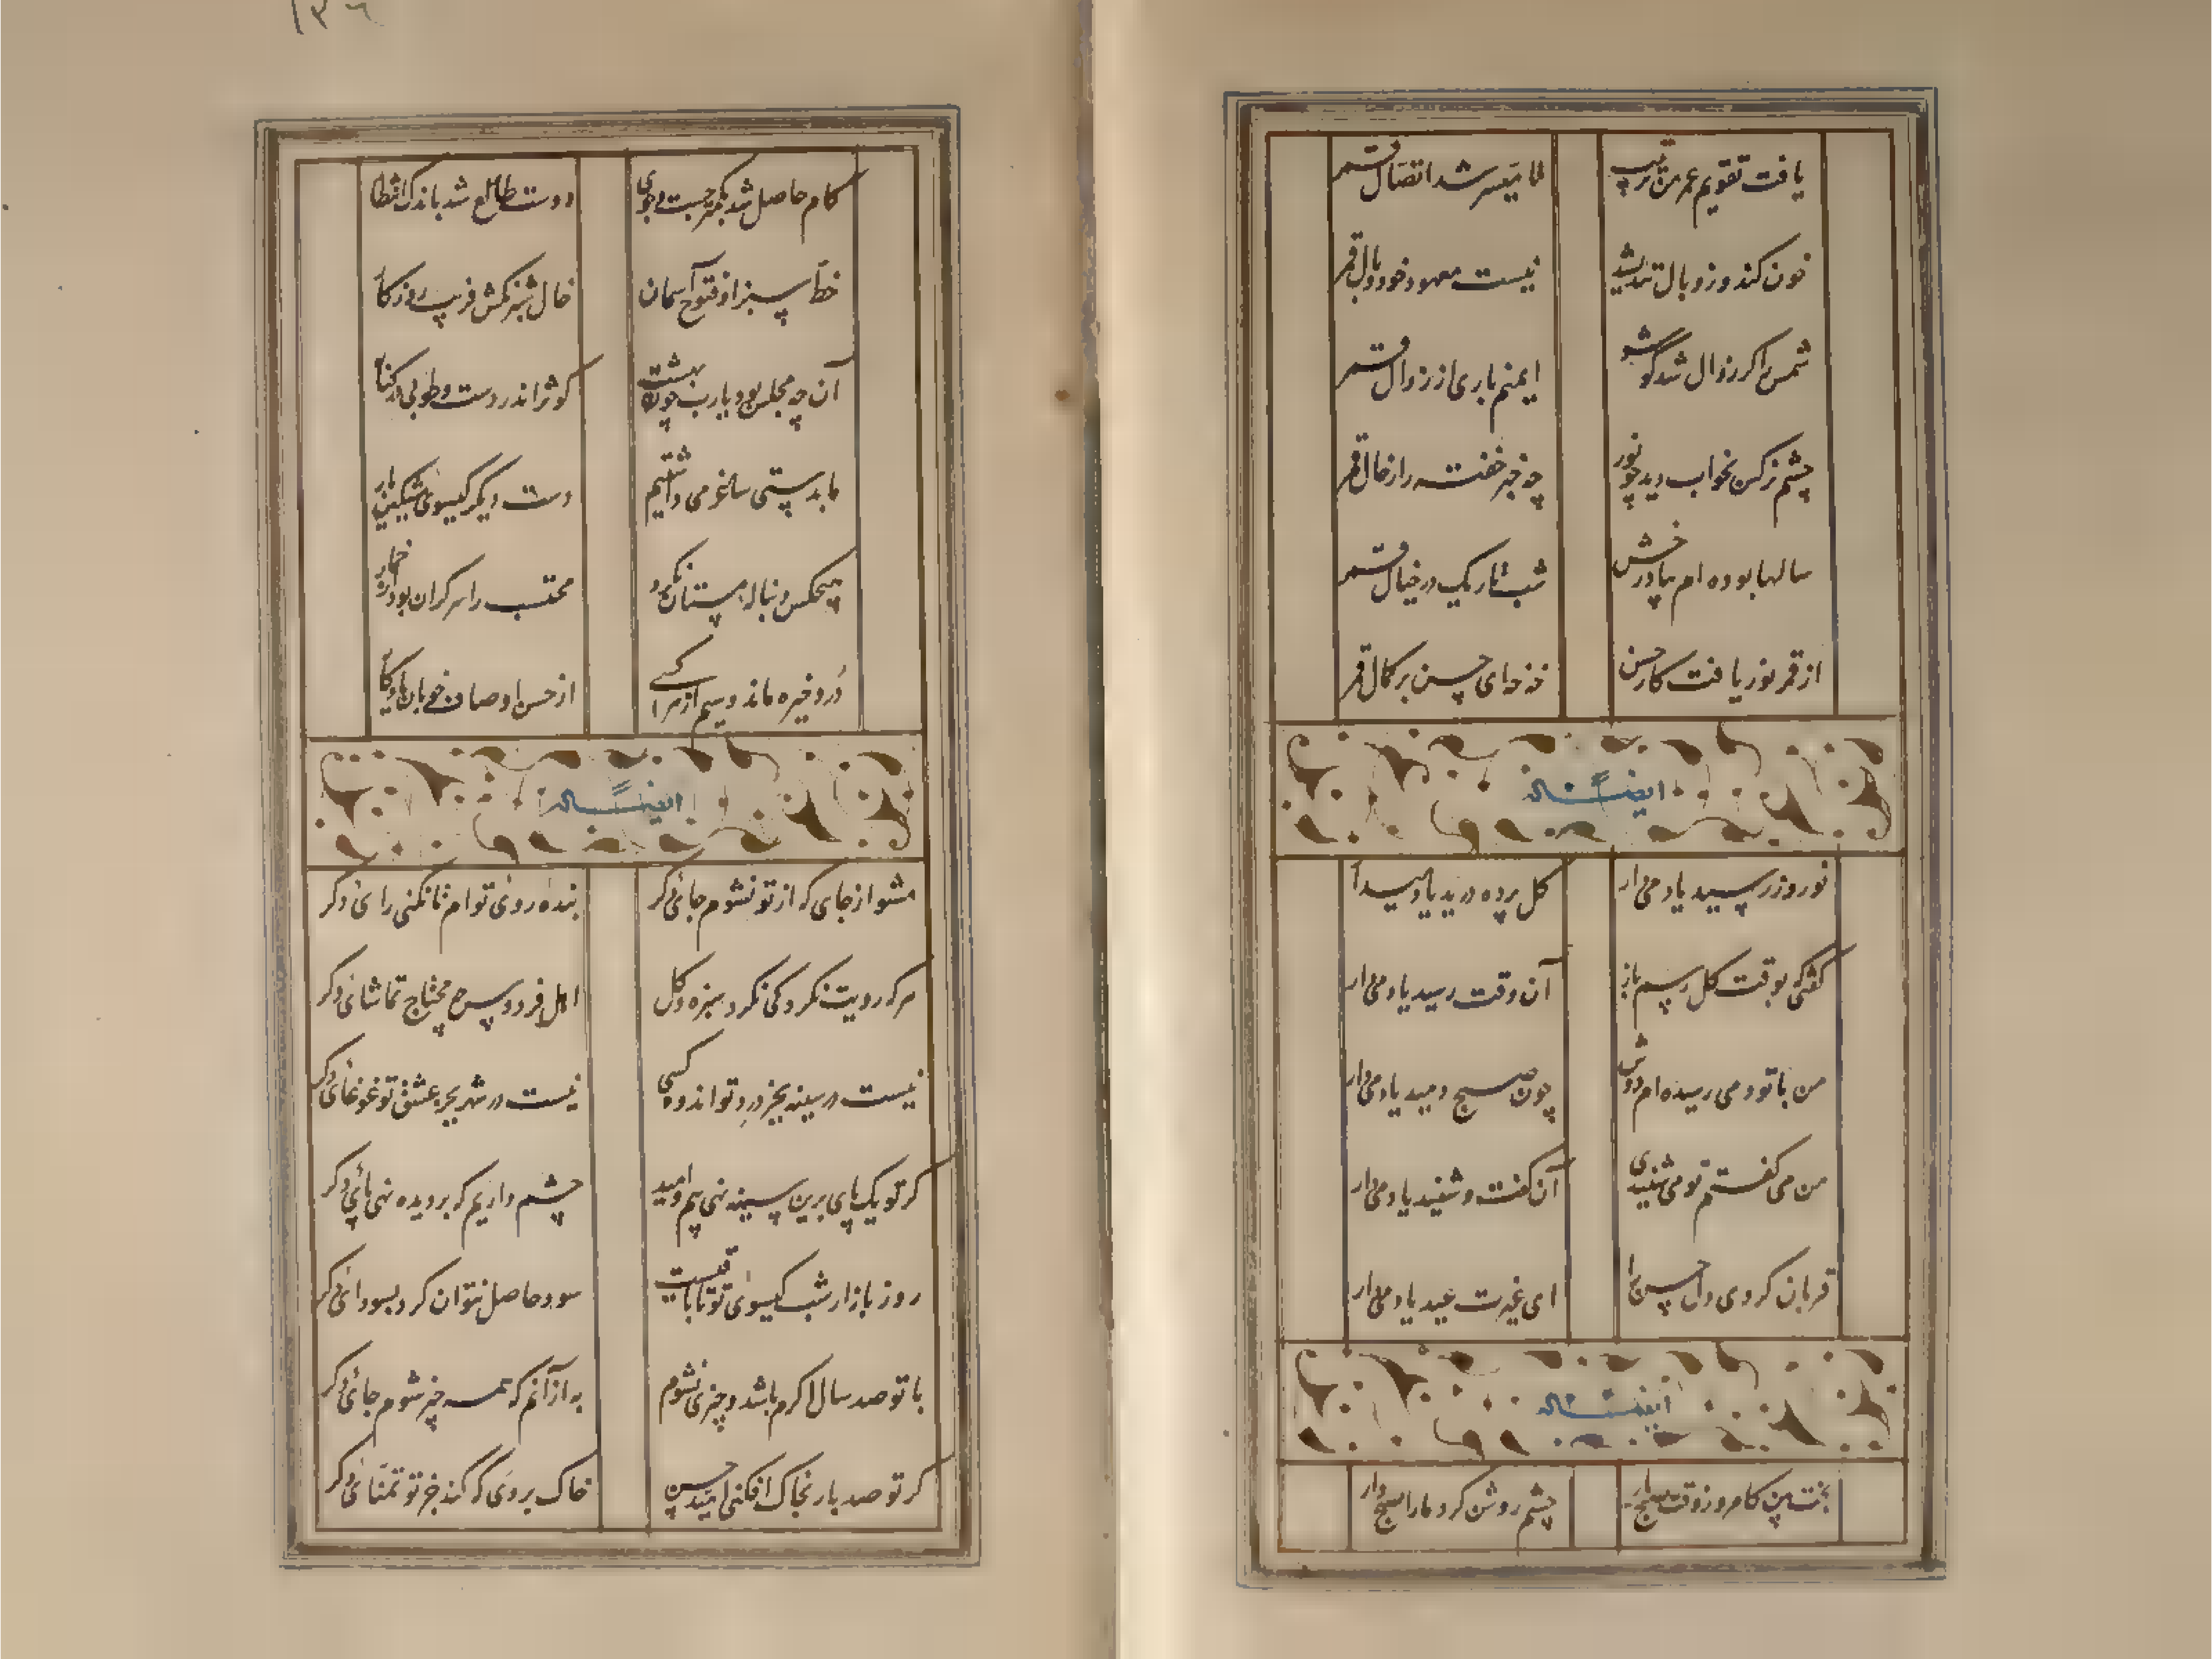 یافت تقویم عمر من ترتیب
تا میسر شد اتصال قمر
خون کند وز وبال نندیشد
نیست معهود خود وبال قمر
شمس را کر زوال شد کو شو
ایمنم باری از زوال قمر
چشم نرکس بخواب دید چو نور
چه خبر خفته را ز حال قمر
سالها بوده ام بیاد رخش
شب تاریک در خیال قمر
از قمر نور یافت کار حسن
خه خه ای حسن بر کمال قمر
ایضاً له
نوروز رسید یاد می دار
کل پرده درید یاد میدار
کفتی که بوقت کل رسم باز
آن وقت رسید یاد می دار
من با تو دمی رسیده ام دوش
چون صبح دمید یاد می دار
من می کفتم تو می شنیدی
آن کفت و شنید یاد می دار
قربان کردی دل حسن را
ای غیرت عید یاد می دار
ایضاً له
بخت بین کامروز وقت صبح
چشم روشن کرد ما را صبح
۱۳۶
کام حاصل شد بکمتر جست و جوی
دوست طالع شد باندک انتظار
خط سبز از فتوح آسمان
خال شبرنکش فریب روزکار
آن چه مجلس بود یارب چون بهشت
کوثر اندر دست و طوبی در کنار
ما بدستی ساغر می داشتیم
دست دیکر کیسوی مشکین یار
هیچکس دنباله مستان نکرد
محتسب را سر کران بود از خمار
در ذخیره ماند و سیم از هر کسی
از حسن اوصاف خوبان یادکار
ایضاً له
مشو از جای که از تو نشوم جای دکر
بنده روی توام تا نکنی رای دکر
هر که رویت نکرد کی نکرد سبزه و کل
اهل فردوس چه محتاج تماشای دکر
نیست در سینه بجز درد تو اندوه کسی
نیست در شهر بجز عشق تو غوغای دکر
کر تو یک پای برین سینه نهی بیم و امید
چشم داریم که بر دیده نهی پای دکر
روز بازار شب کیسوی تو تا باقیست
سود حاصل نتوان کرد بسودای دکر
با تو صد سال اکرم باشد و چیزی نشوم
به از آنم که همه چیز شوم جای دکر
کر تو صد بار بخاک افکنی امید حسن
خاک بر وی که کند جز تو تمنای دکر